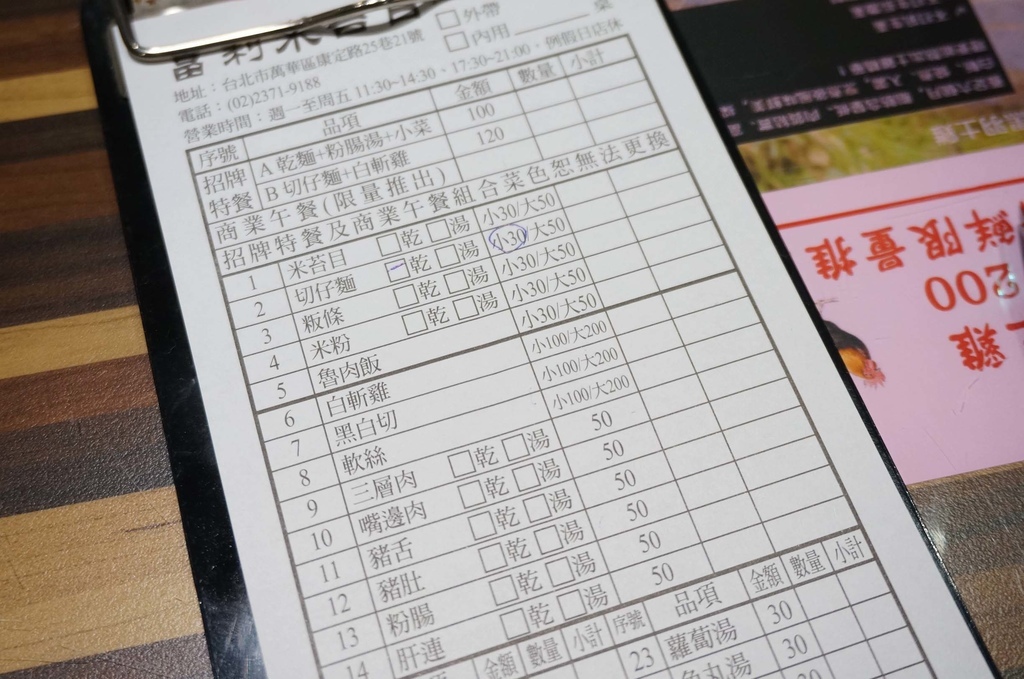 外帶
內用 桌
地址：台北市萬華區康定路25巷21號
電話：(02)2371-9188
營業時間：週一至周五 11:30~14:30、17:30~21:00，例假日店休
序號 品項 金額 數量 小計
招牌特餐 A 乾麵+粉腸湯+小菜 100
B 切仔麵+白斬雞 120
商業午餐(限量推出)
招牌特餐及商業午餐組合菜色恕無法更換
1 米苔目 □乾 □湯 小30/大50
2 切仔麵 □乾 □湯 小30/大50
3 粄條 □乾 □湯 小30/大50
4 米粉 □乾 □湯 小30/大50
5 魯肉飯 小30/大50
6 白斬雞 小100/大200
7 黑白切 小100/大200
8 軟絲 小100/大200
9 三層肉 □乾 □湯 50
10 嘴邊肉 □乾 □湯 50
11 豬舌 □乾 □湯 50
12 豬肚 □乾 □湯 50
13 粉腸 □乾 □湯 50
14 肝連 □乾 □湯 50
金額 數量 小計 序號 品項 金額 數量 小計
23 蘿蔔湯 30
魚丸湯 30
鮮限量推
200
雞